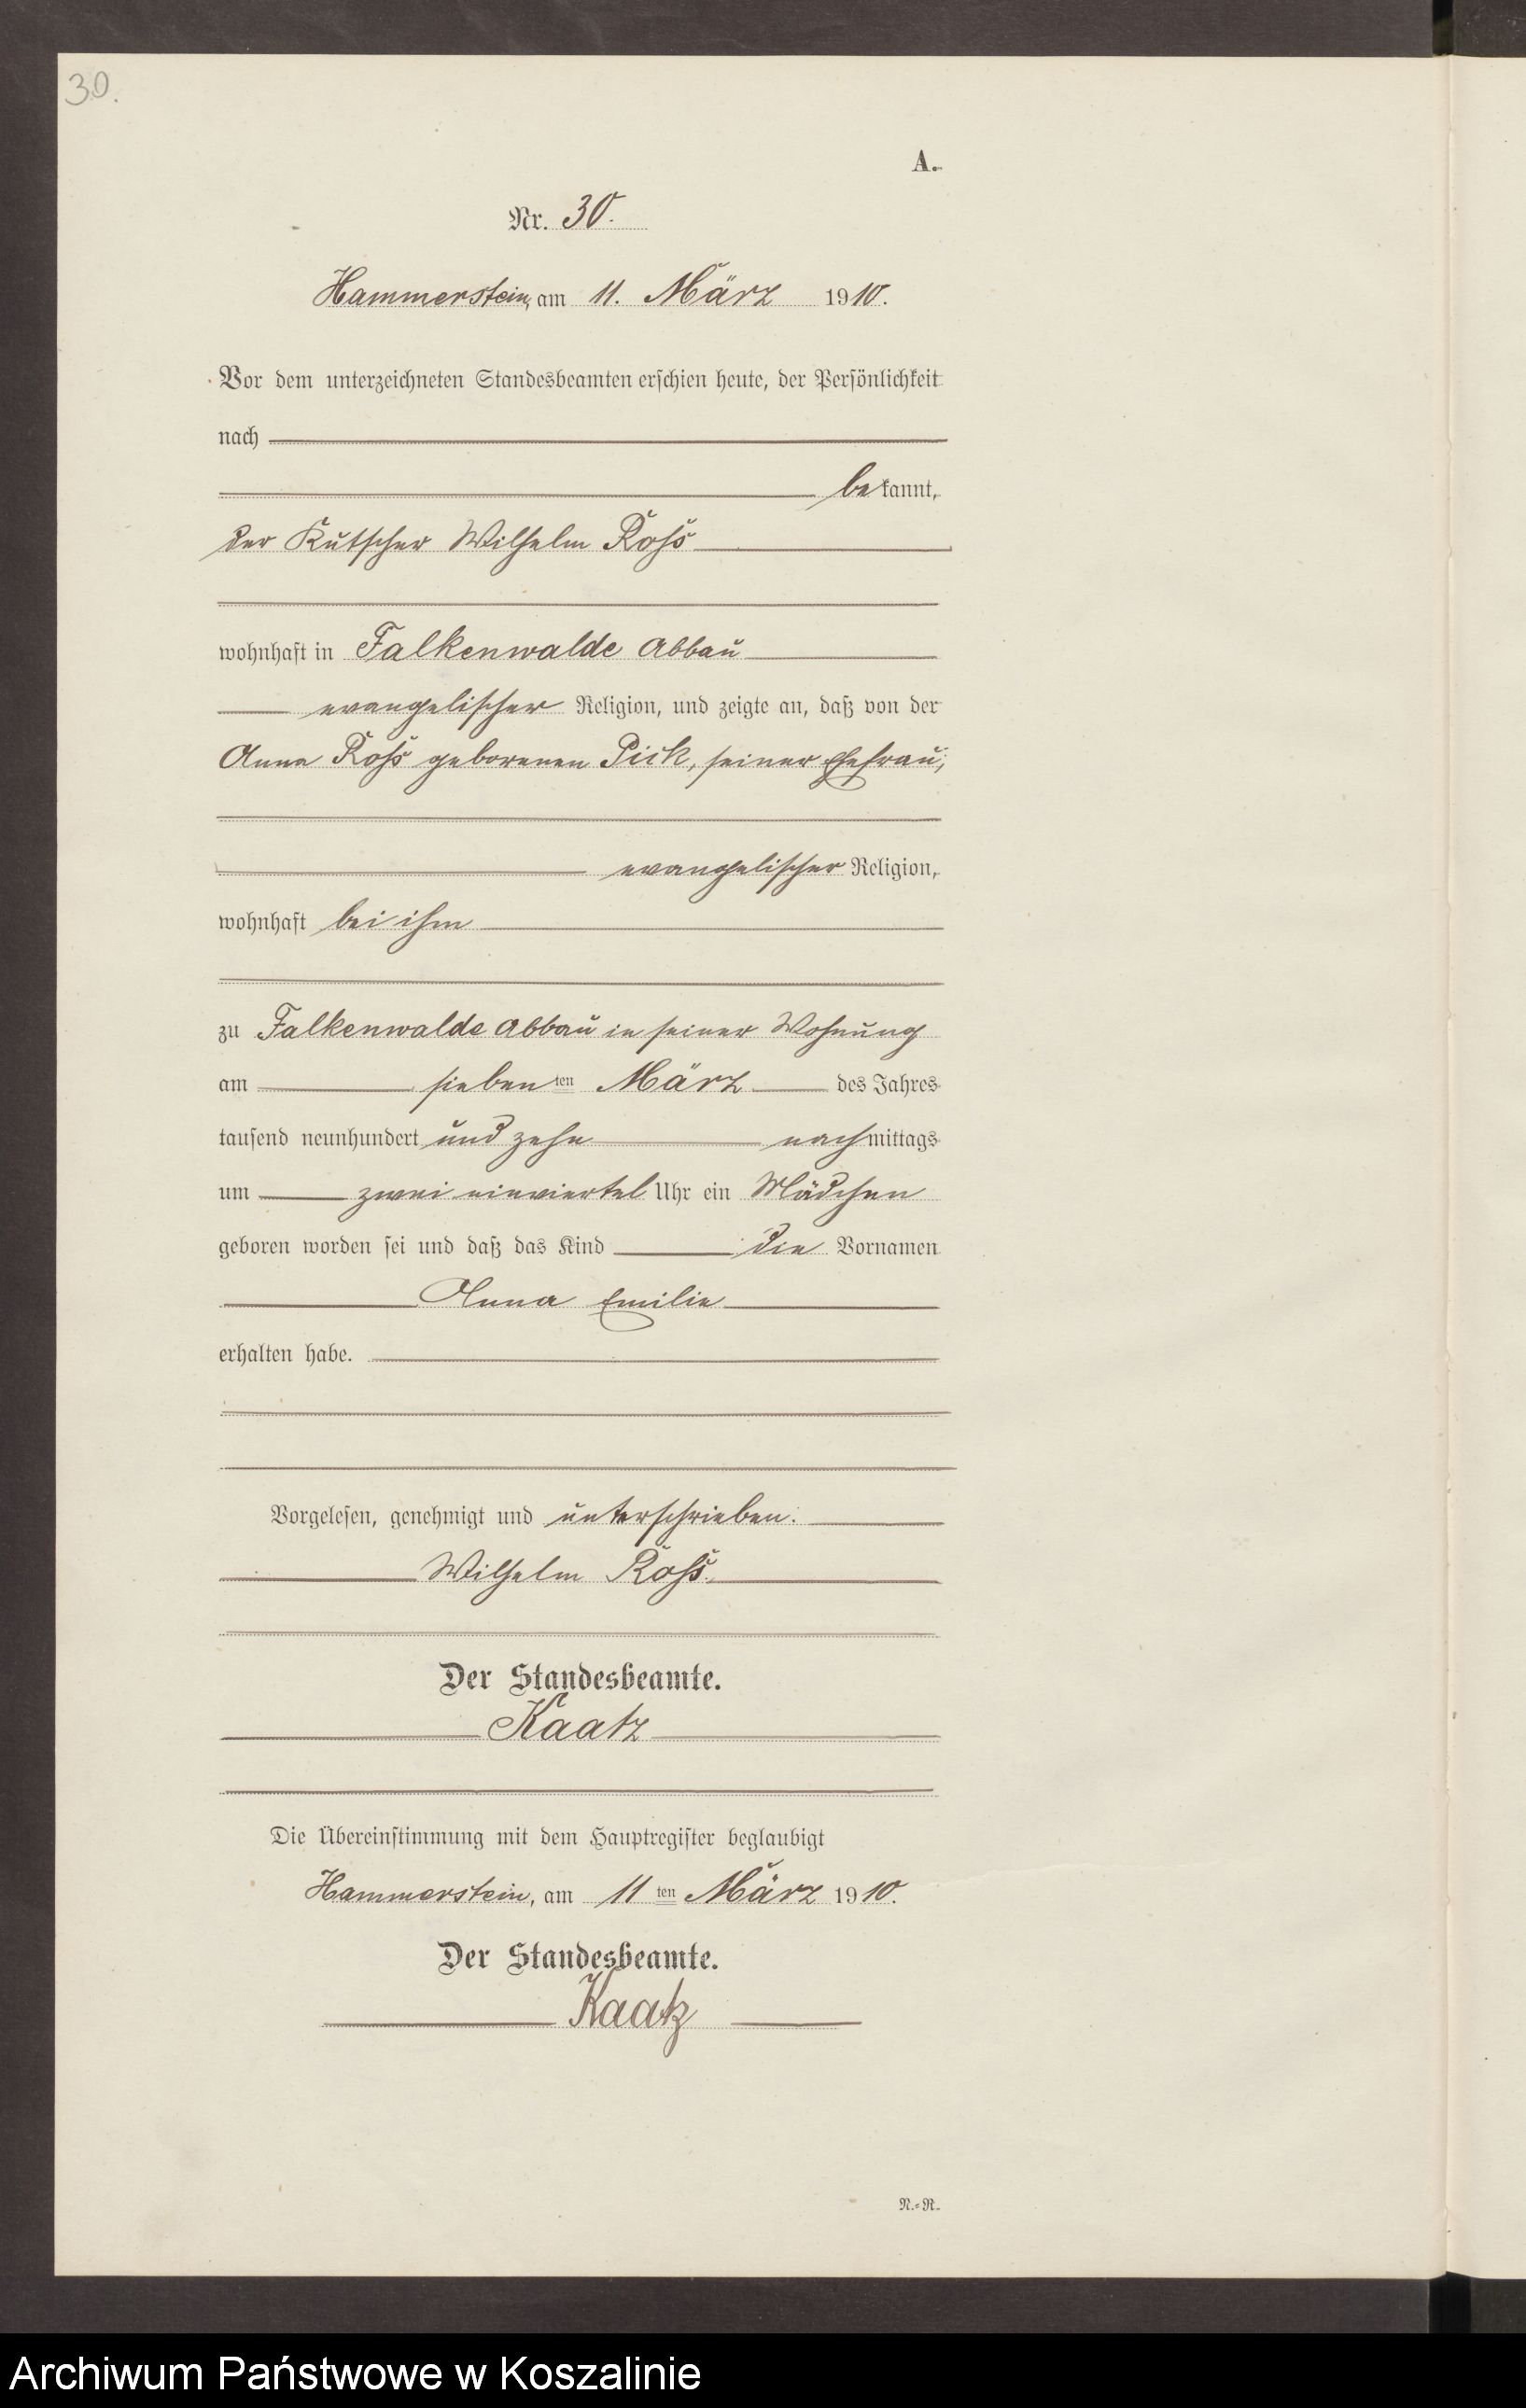 30.
A.
Nr. 30.
Hammerstein, am 11. März 1910.
Vor dem unterzeichneten Standesbeamten erschien heute, der Persönlichkeit
nach
bekannt,
der Kutscher Wilhelm Roß
wohnhaft in Falkenwalde Abbau
evangelischer Religion, und zeigte an, daß von der
Anna Roß geborenen Pick, seiner Ehefrau,
evangelischer Religion,
wohnhaft bei ihm
zu Falkenwalde Abbau in seiner Wohnung
am siebenten März des Jahres
tausend neunhundert und zehn nachmittags
um zwei einviertel Uhr ein Mädchen
geboren worden sei und daß das Kind die Vornamen
Anna Emilie
erhalten habe.
Vorgelesen, genehmigt und unterschrieben.
Wilhelm Roß.
Der Standesbeamte.
Kaatz
Die Übereinstimmung mit dem Hauptregister beglaubigt
Hammerstein, am 11ten März 1910.
Der Standesbeamte.
Kaatz
N.=R.
Archiwum Państwowe w Koszalinie